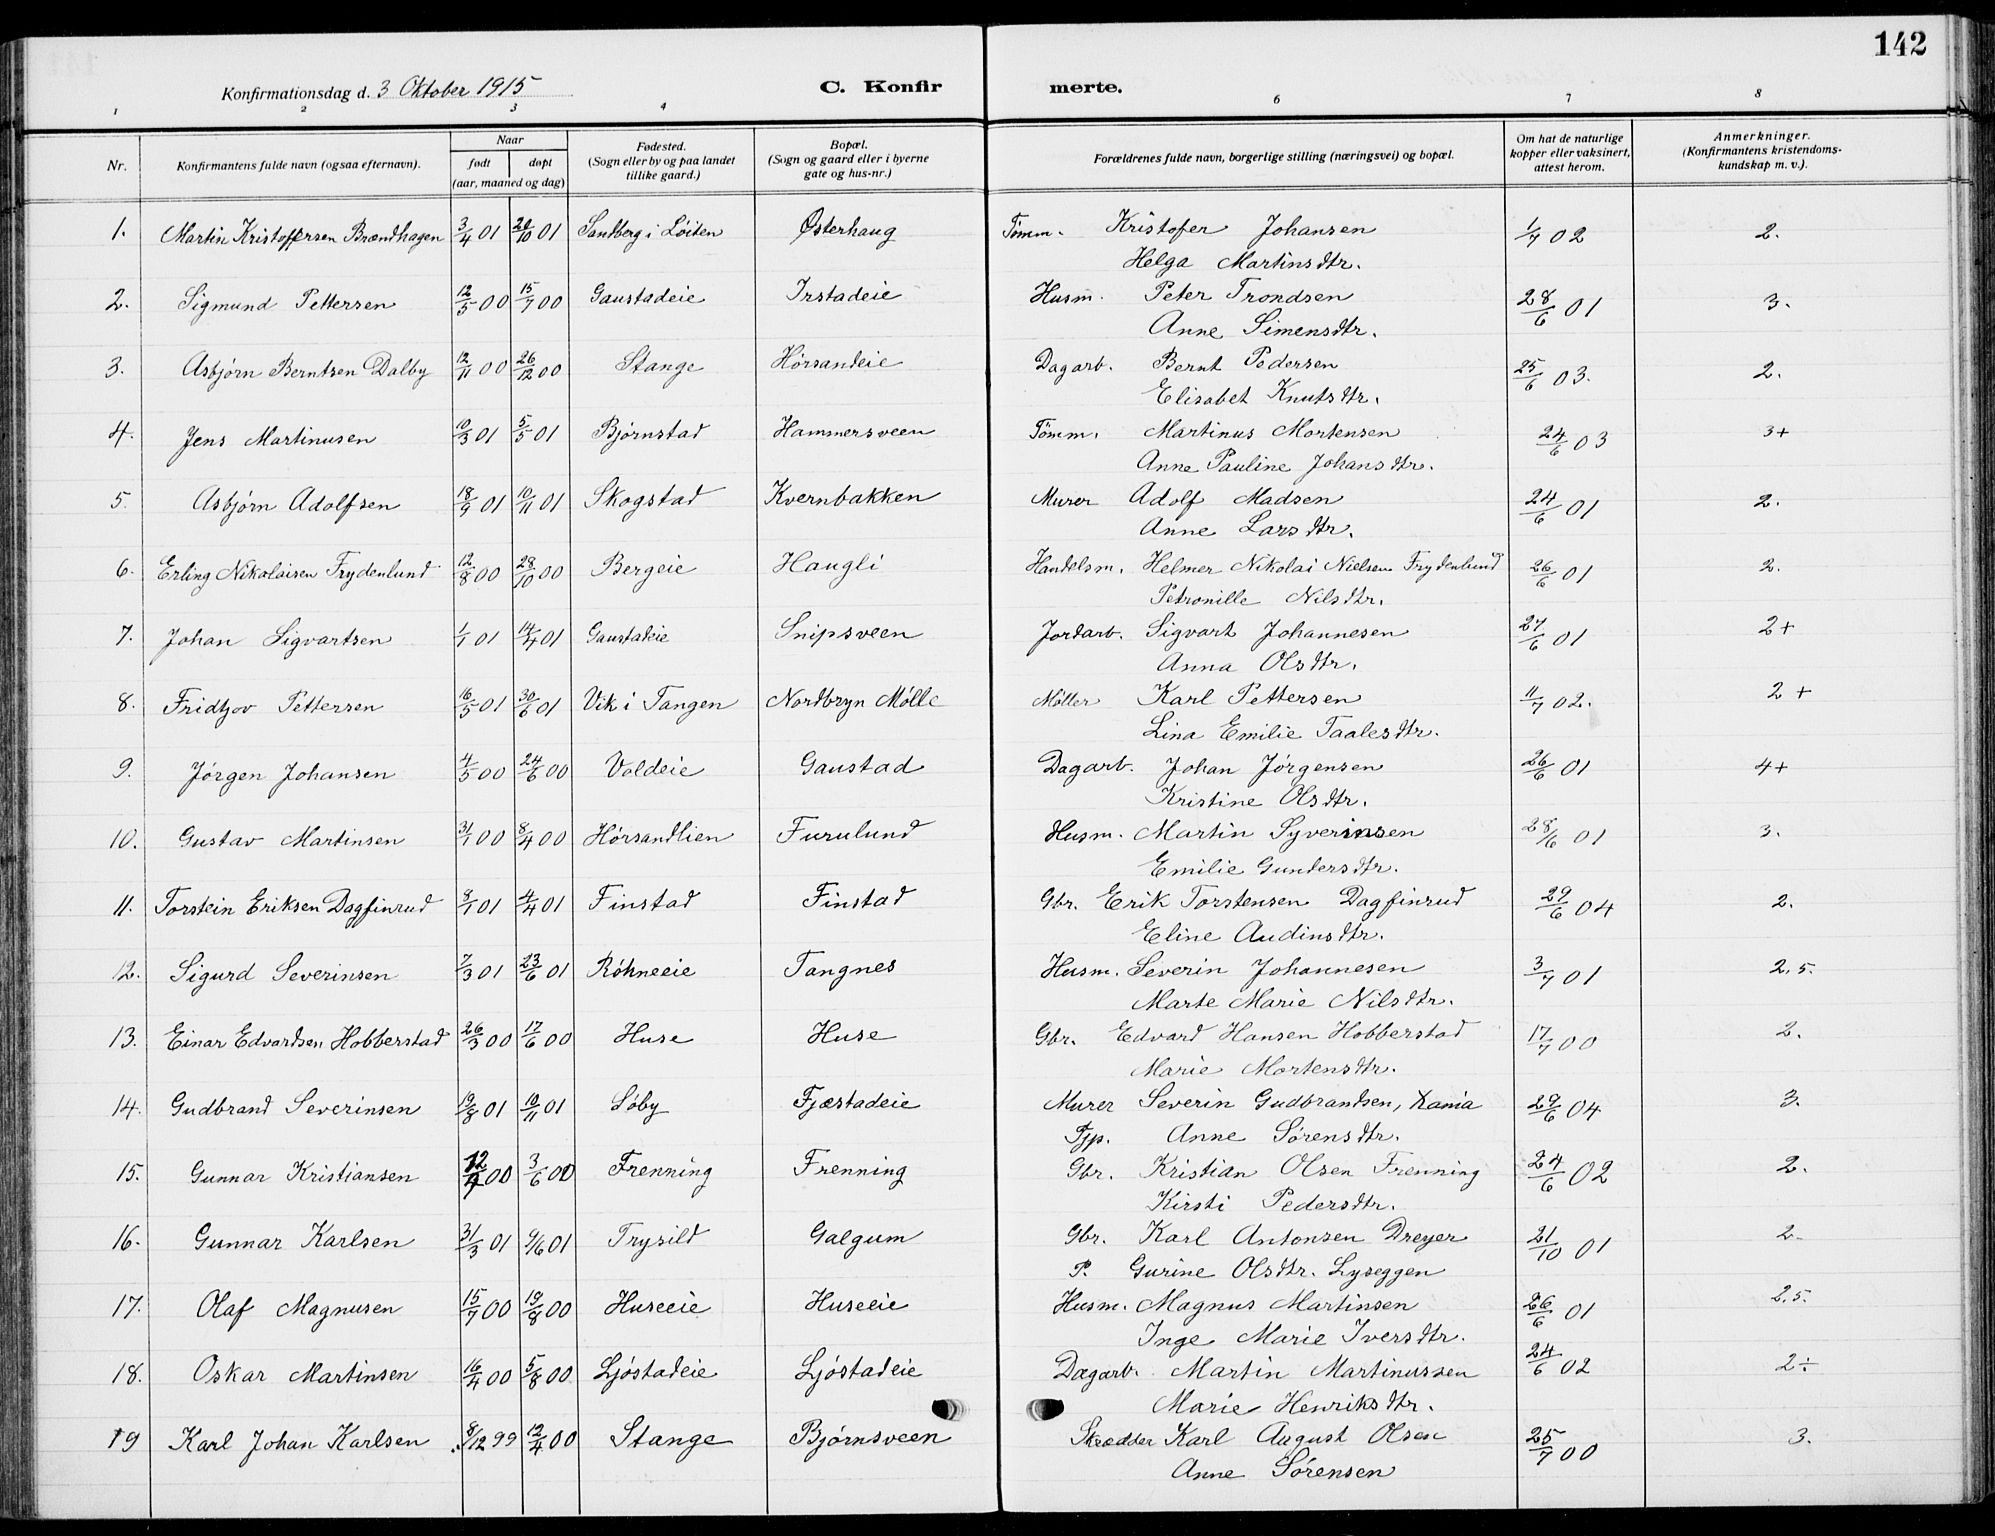 142
Konfirmationsdag d. 3 Oktober 1915 C. Konfir merte.
1 2 3 4 6 7 8
Nr. Konfirmantens fulde navn (ogsaa efternavn). Naar født døpt (aar, maaned og dag) Fødested. (Sogn eller by og paa landet tillike gaard.) Bopæl. (Sogn og gaard eller i byerne gate og hus-nr.) Forældrenes fulde navn, borgerlige stilling (næringsvei) og bopæl. Om hat de naturlige kopper eller vaksinert, attest herom. Anmerkninger. (Konfirmantens kristendoms-kundskap m. v.).
1. Martin Kristoffersen Brændhagen 3/4 01 20/10 01 Sandberg i Løiten Østerhaug Tømm. Kristofer Johansen 1/7 02 2.
Helga Martinsdtr.
2. Sigmund Pettersen 12/5 00 15/7 00 Gaustadeie Irstadeie Husm. Peter Trondsen 28/6 01 3.
Anne Simensdtr.
3. Asbjørn Berntsen Dalby 12/11 00 26/12 00 Stange Hørsandeie Dagarb. Bernt Pedersen 25/6 03. 2.
Elisabet Knutsdtr.
4. Jens Martinusen 10/3 01 5/5 01 Bjørnstad Hammersveen Tømm. Martinus Mortensen 24/6 03 3+
Anne Pauline Johansdtr.
5. Asbjørn Adolfsen 18/9 01 10/11 01 Skogstad Kvernbakken Murer Adolf Madsen 24/6 01 2.
Anne Larsdtr.
6. Erling Nikolaisen Frydenlund 12/8 00 28/10 00 Bergeie Haugli Handelsm. Helmer Nikolai Nielsen Frydenlund 26/6 01 2.
Petronille Nilsdtr.
7. Johan Sigvartsen 1/1 01 14/4 01 Gaustadeie Snipsveen Jordarb. Sigvart Johannesen 27/6 01 2+
Anna Olsdtr.
8. Fridtjov Pettersen 16/5 01 30/6 01 Vik i Tangen Nordbryn Mølle Møller Karl Pettersen 11/7 02. 2+
Lina Emilie Taalesdtr.
9. Jørgen Johansen 4/5 00 24/6 00 Voldeie Gaustad Dagarb. Johan Jørgensen 26/6 01 4+
Kristine Olsdtr.
10. Gustav Martinsen 31/1 00 8/4 00 Hørsandlien Furulund Husm. Martin Syverinsen 28/6 01 3.
Emilie Gundersdtr.
11. Torstein Eriksen Dagfinrud 8/1 01 4/4 01 Finstad Finstad Gbr. Erik Torstensen Dagfinrud 29/6 04 2.
Eline Audinsdtr.
12. Sigurd Severinsen 7/3 01 23/6 01 Røhneeie Tangnes Husm. Severin Johannesen 3/7 01 2,5.
Marte Marie Nilsdtr.
13. Einar Edvardsen Hobberstad 26/3 00 17/6 00 Huse Huse Gbr. Edvard Hansen Hobberstad 17/7 00 2.
Marie Mortensdtr.
14. Gudbrand Severinsen 19/8 01 10/11 01 Søby Fjæstadeie Murer Severin Gudbrandsen, Kania 29/6 04 3.
Pjp. Anne Sørensdtr.
15. Gunnar Kristiansen 12/4 00 3/6 00 Frenning Frenning Gbr. Kristian Olsen Frenning 24/6 02 2.
Kirsti Pedersdtr.
16. Gunnar Karlsen 31/3 01 9/6 01 Trysild Galgum Gbr. Karl Antonsen Dreyer 21/10 01 2-
P. Gurine Olsdtr. Lyseggen
17. Olaf Magnusen 15/7 00 19/8 00 Huseeie Huseeie Husm. Magnus Martinsen 26/6 01 2,5.
Inge Marie Iversdtr.
18. Oskar Martinsen 16/4 00 5/8 00 Ljøstadeie Ljøstadeie Dagarb. Martin Martinussen 24/6 02 2÷
Marie Henriksdtr.
19 Karl Johan Karlsen 8/12 99 12/4 00 Stange Bjørnsveen Skrædder Karl August Olsen 25/7 00 3.
Anne Sørensen